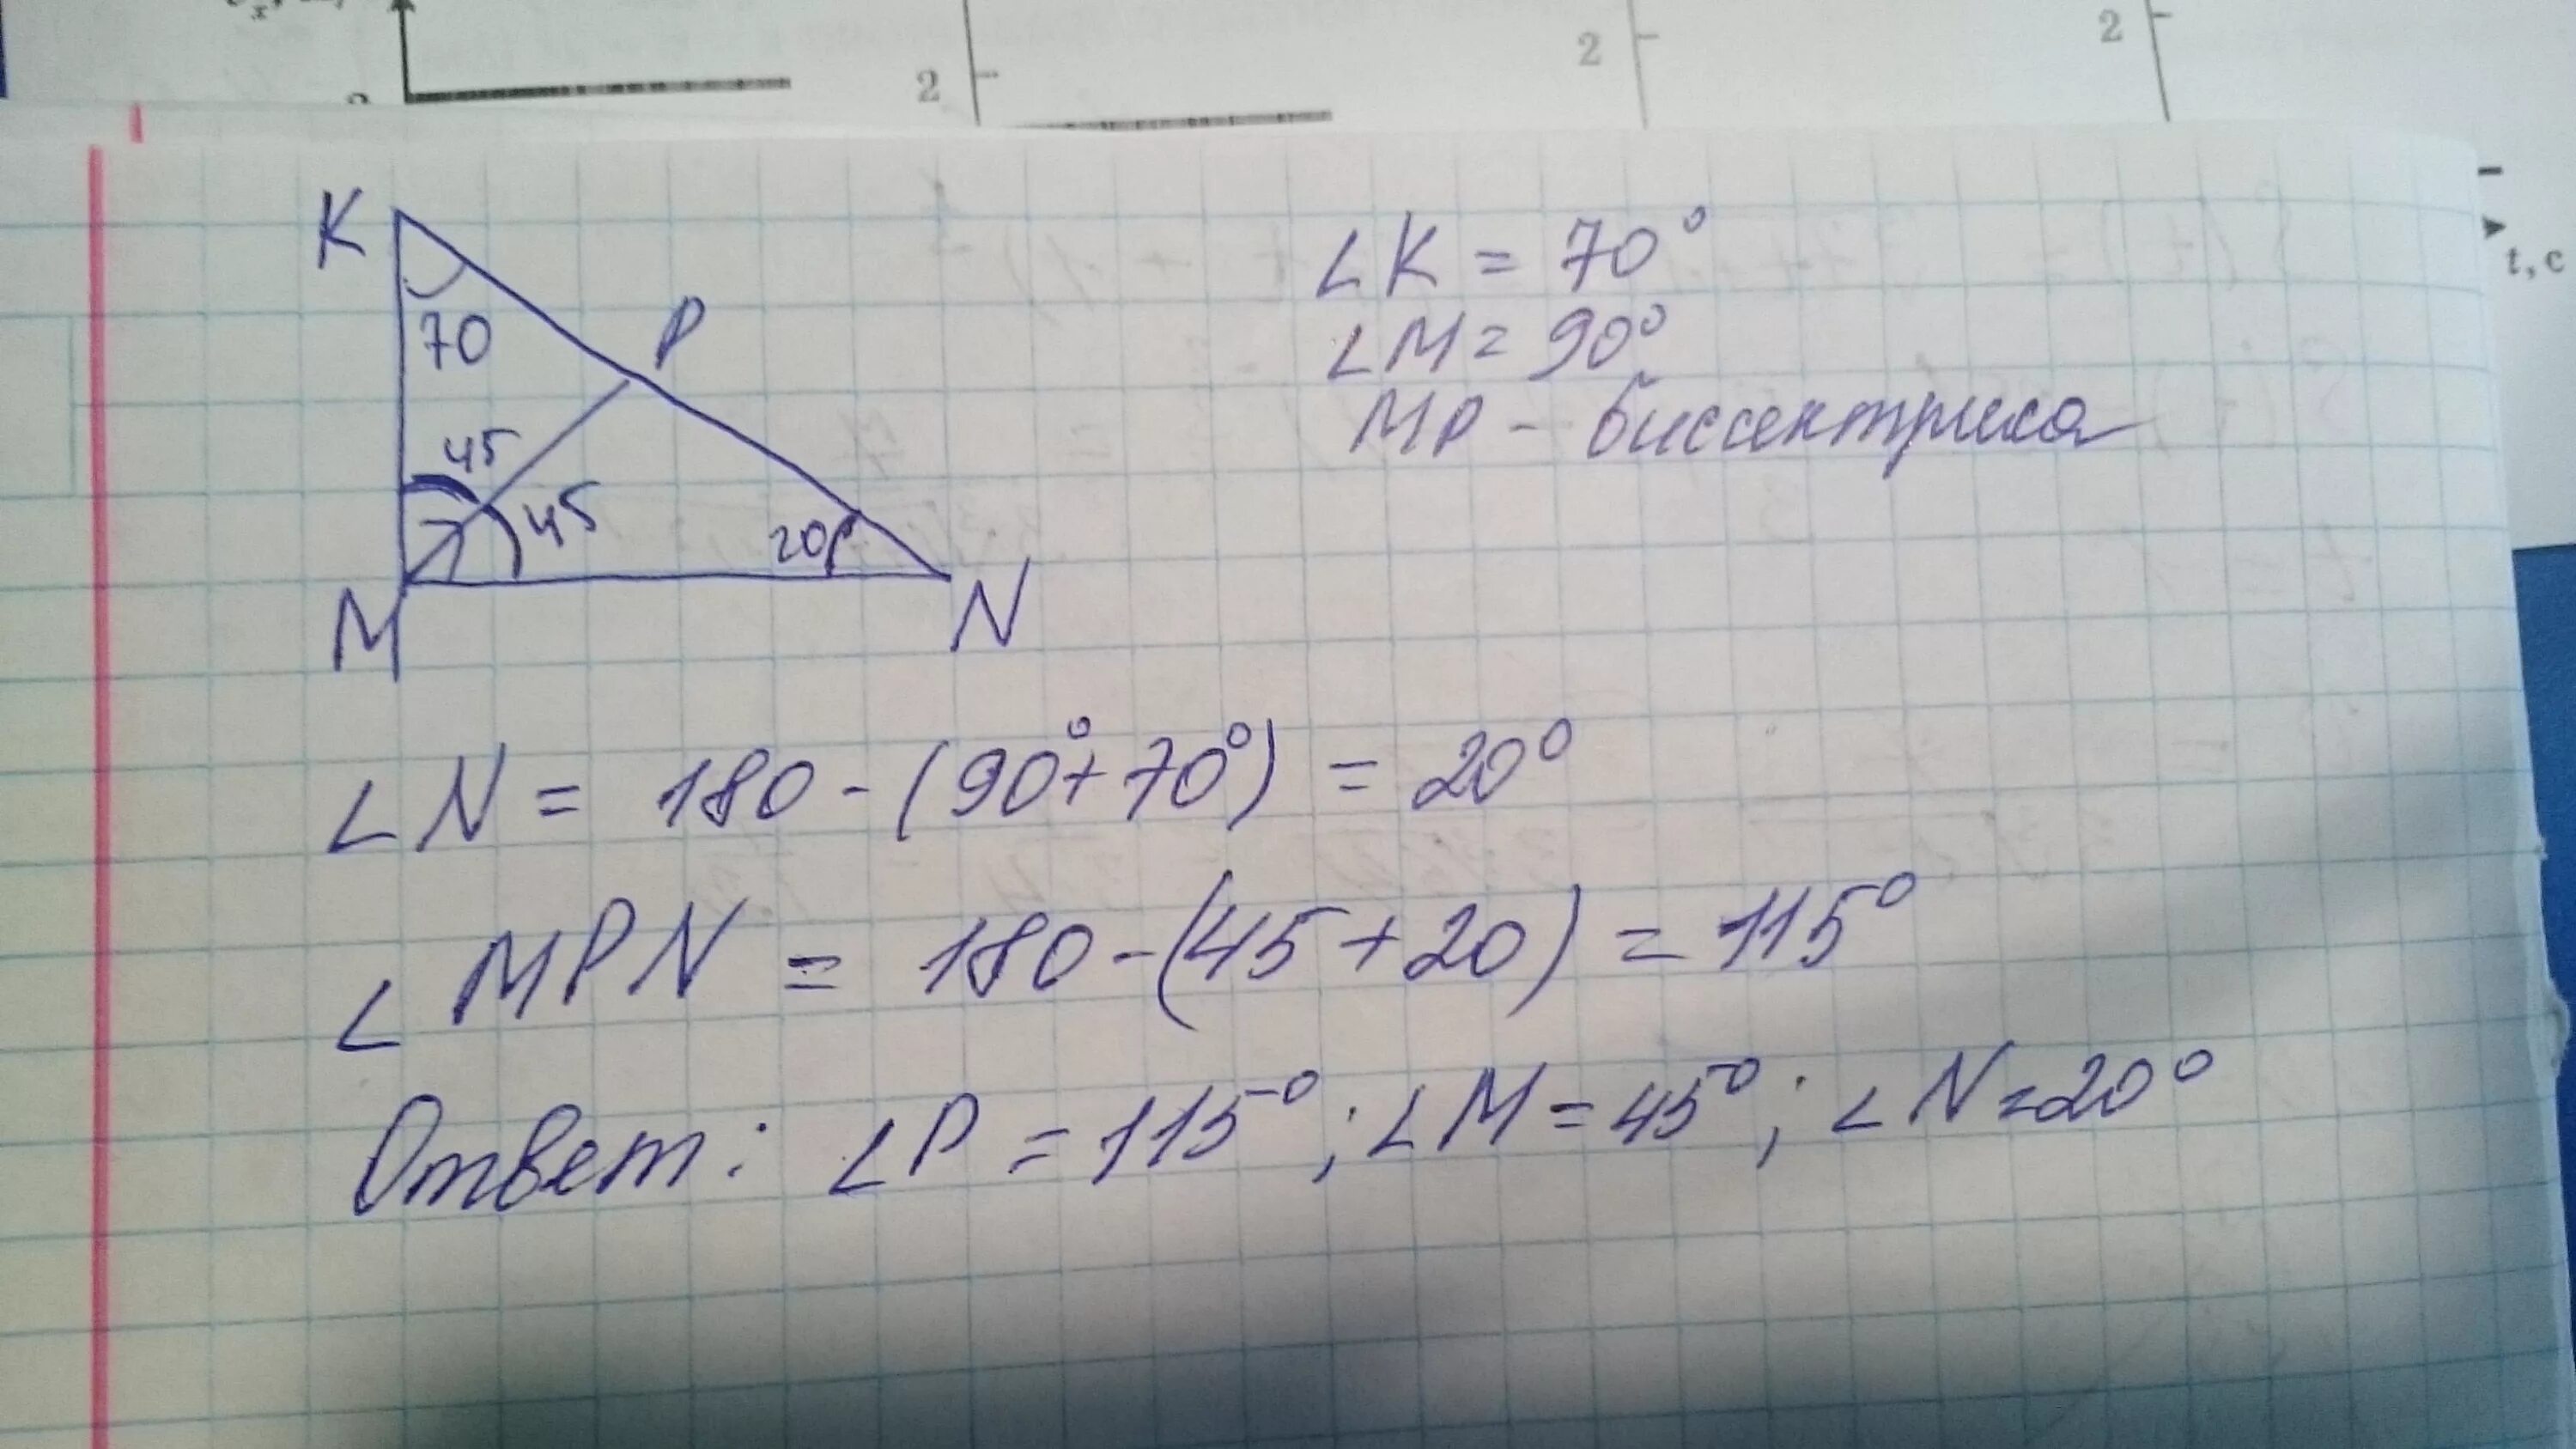 2
2
2
t, с
K
P
70
45
45
20
M
N
∠K = 70°
∠M = 90°
MP - биссектриса
∠N = 180 - (90°+70°) = 20°
∠MPN = 180 - (45+20) = 115°
Ответ: ∠P = 115°; ∠M = 45°; ∠N = 20°